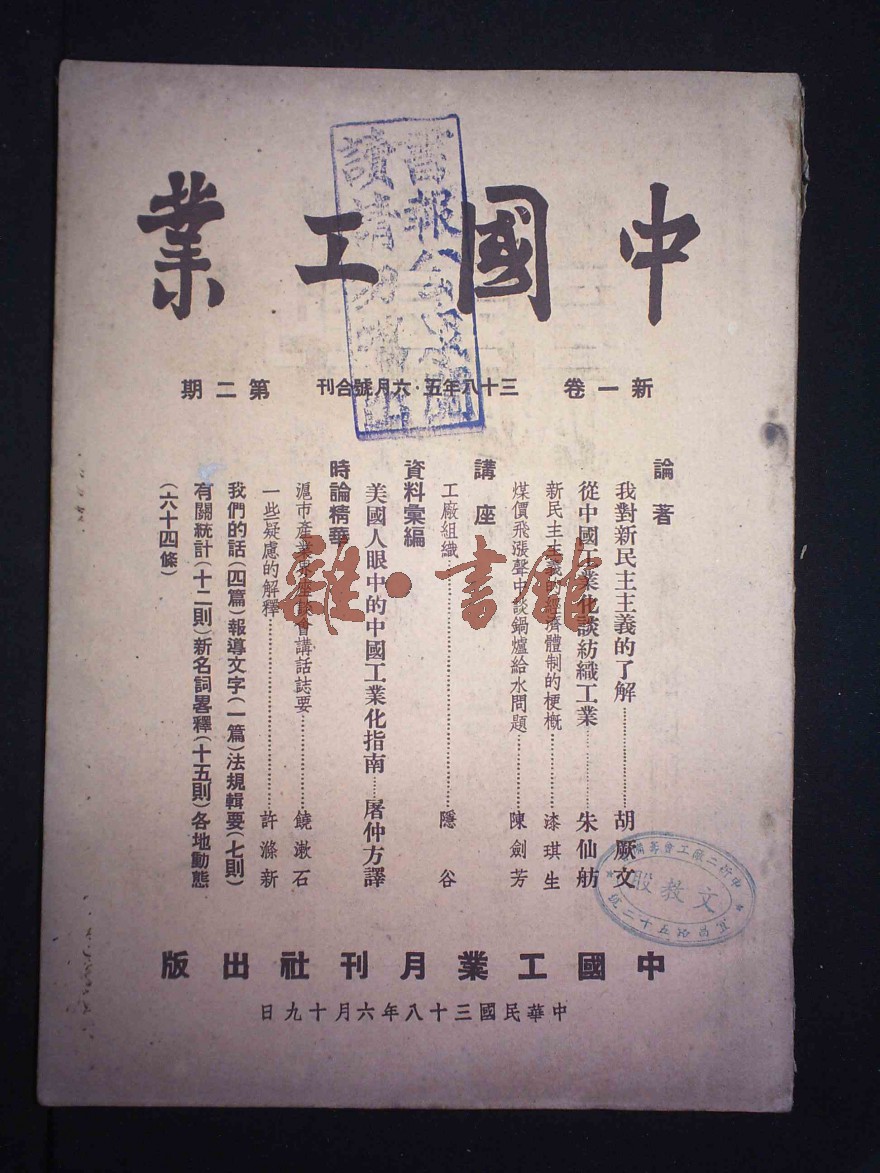 中國工業
新一卷 三十八年五·六月號合刊 第二期
書報公衆閱
讀請勿攜出
論著
我對新民主主義的了解……………胡厥文
從中國工業化談紡織工業……………朱仙舫
新民主主義的經濟體制的梗概……………漆琪生
煤價飛漲聲中談鍋爐給水問題……………陳劍芳
講座
工廠組織……………隱谷
資料彙編
美國人眼中的中國工業化指南……屠仲方譯
時論精華
滬市產業界座談會講話誌要……………饒漱石
一些疑慮的解釋……………許滌新
我們的話(四篇)報導文字(一篇)法規輯要(七則)
有關統計(十二則)新名詞畧釋(十五則)各地動態
(六十四條)
雜·書館
文教股
中國工業月刊社出版
中華民國三十八年六月十九日